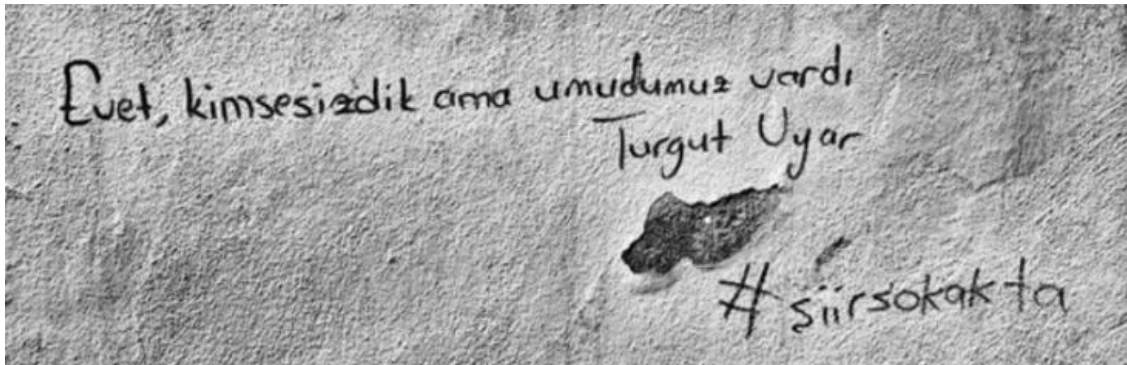 Evet, kimsesizdik ama umudumuz vardı
Turgut Uyar
#siirsokakta